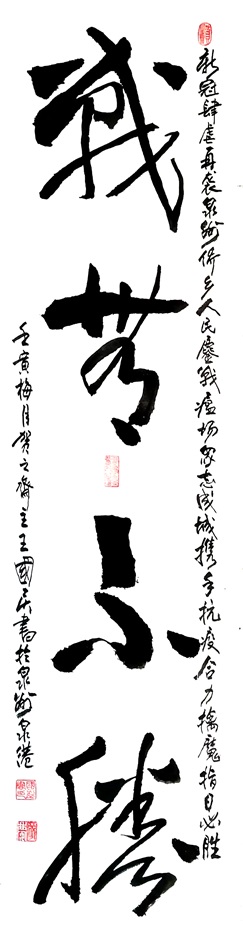 新冠肆虐再袭泉州侨乡人民鏖戰瘟场众志成城携手抗疫合力擒魔指日必胜
戰無不勝
壬寅梅月贺之齋主王國書於泉州泉港